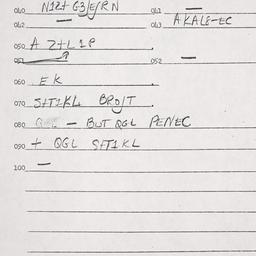 040 N12+ G3/E/R N 041 —
042 — 043 AKALE-EC
050 A Z+L1P
051 052 —
060 EK
070 S+T1KL BRO/T
080 — BUT QGL PENEC
090 + QGL S+T1KL
100 —